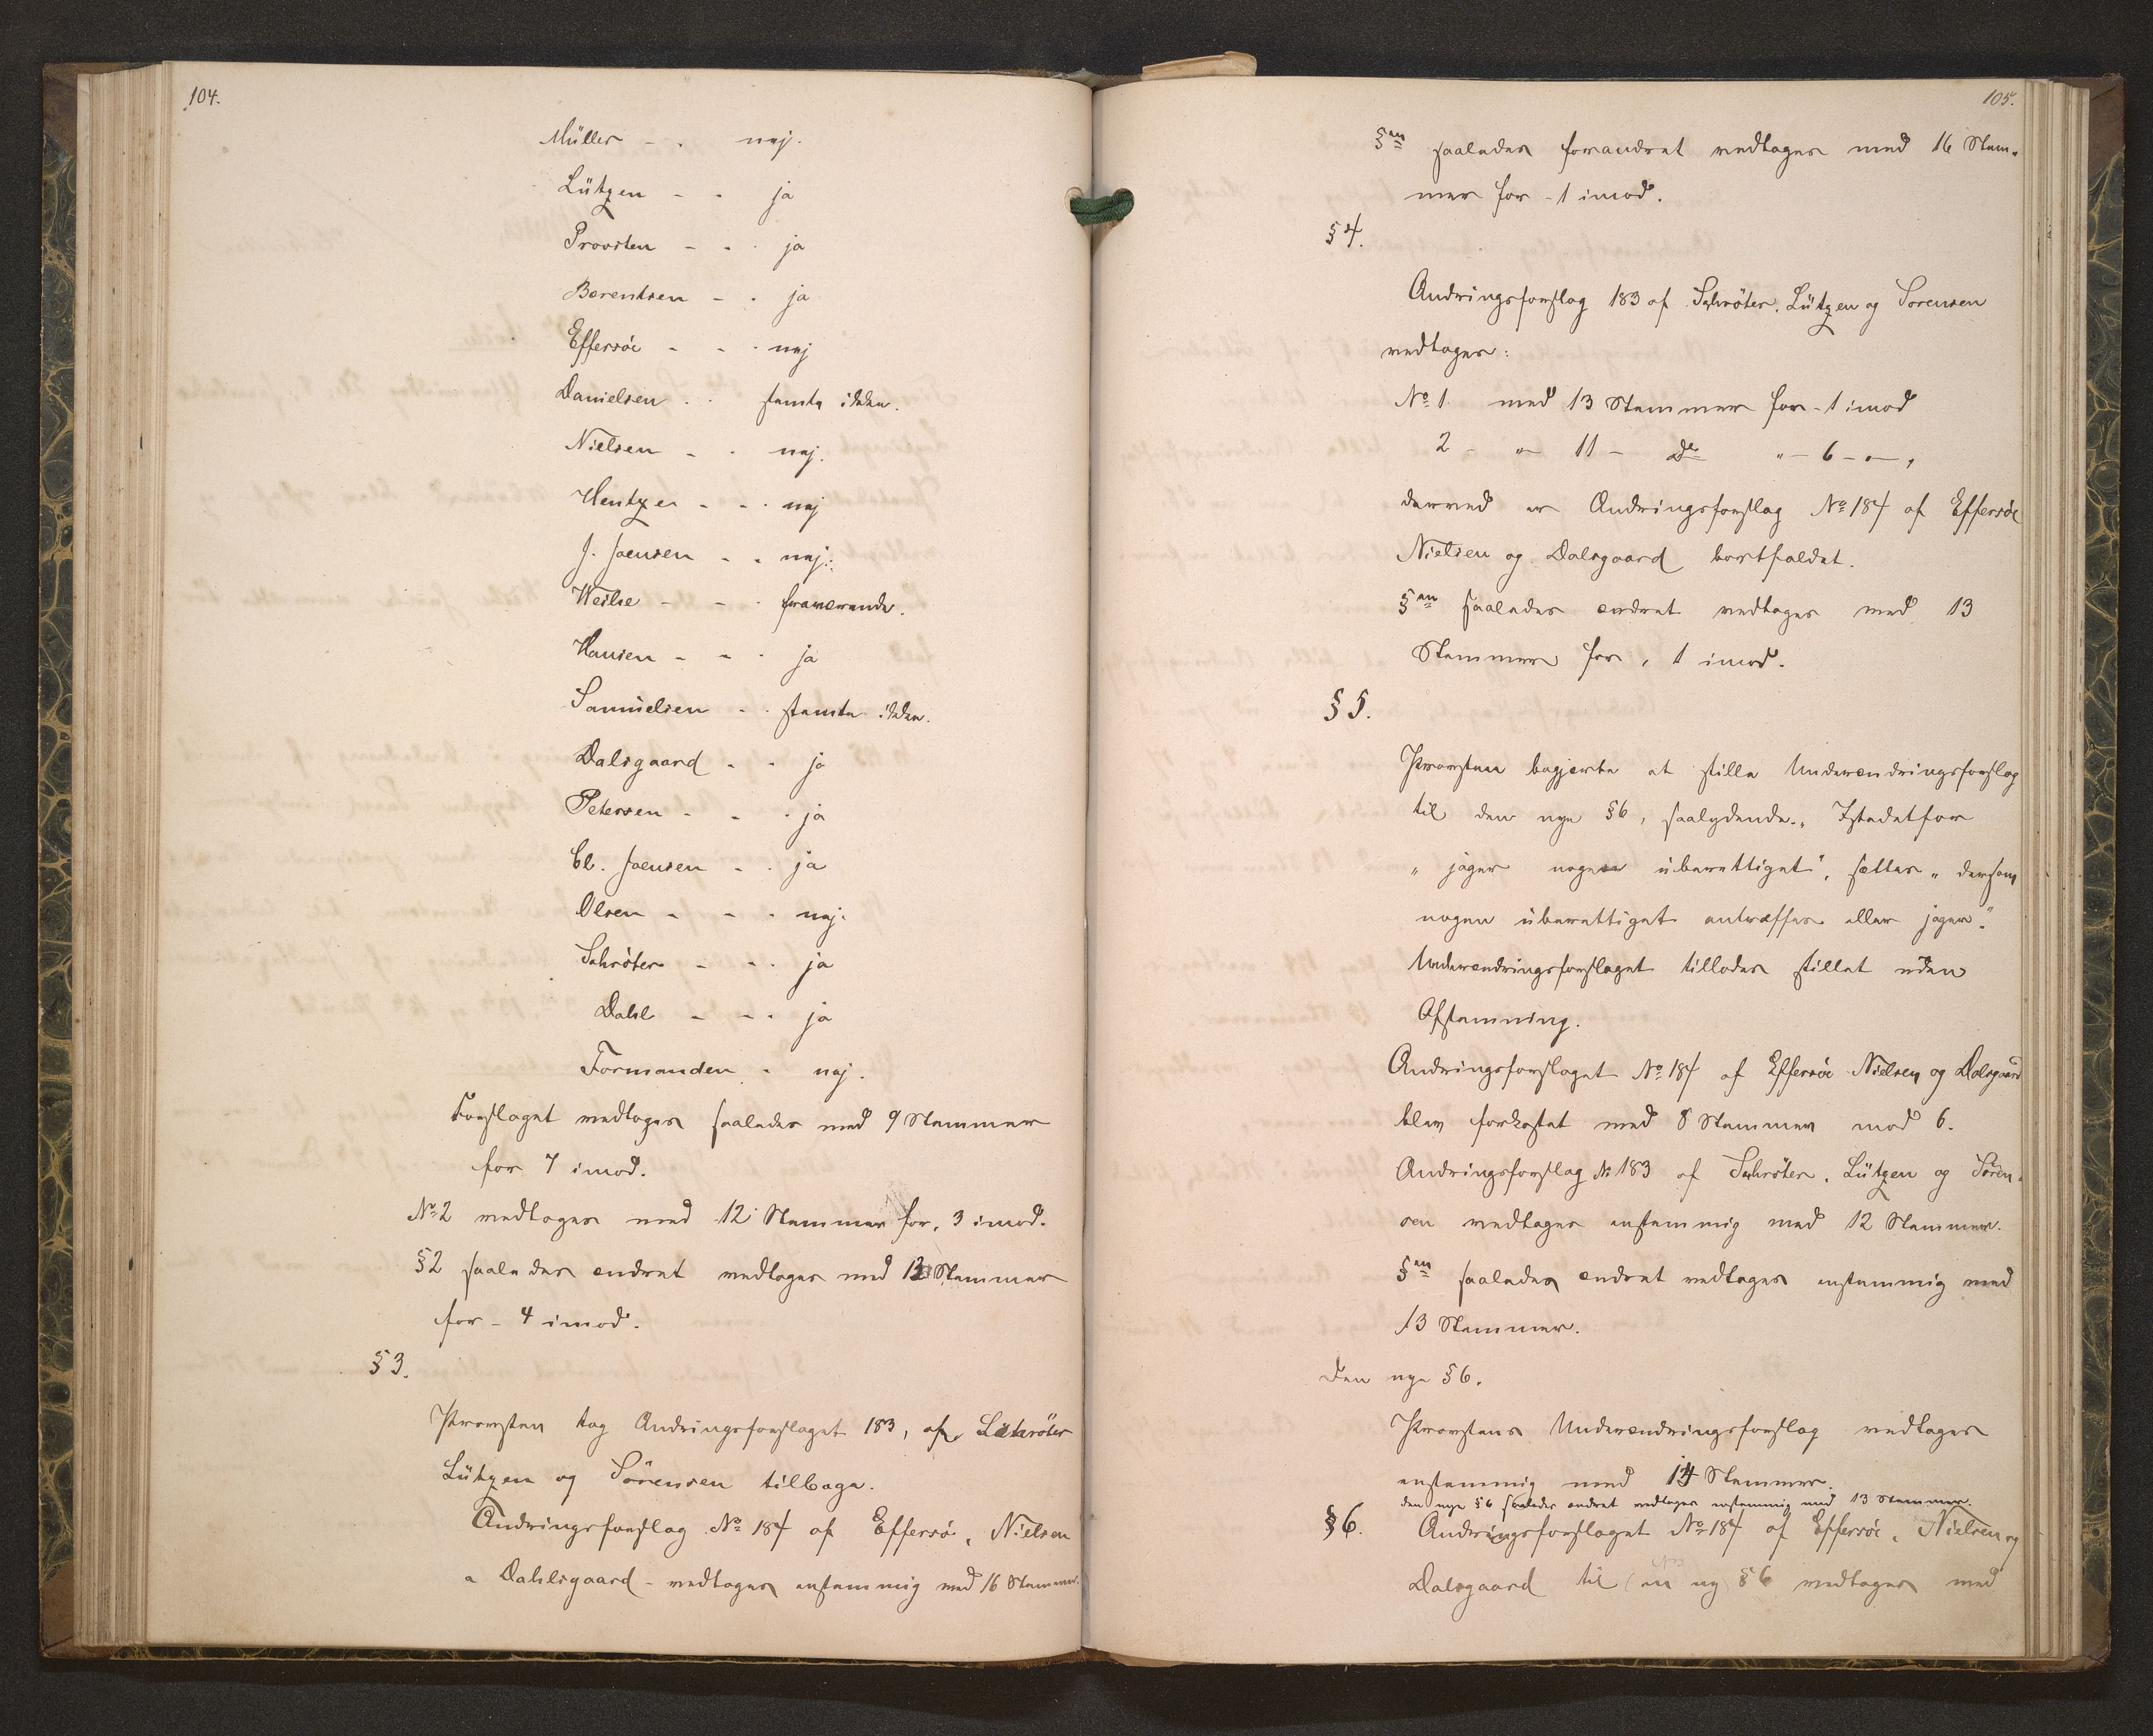 104.
Müller - . nej.
Lützen - - ja
Provsten - - . ja
Berentsen - . ja
Effersöe - - . nej
Danielsen . . stemte ikke.
Nielsen - . nej.
Hentze - - . nej
J. Joensen - - nej.
Weihe - - . fraværende.
Hansen - - . ja
Samuelsen - . stemte ikke.
Dalsgaard - - ja
Petersen - - . ja
Cl. Joensen - . ja
Olsen - - . nej.
Schröter - - . ja
Dahl - - . ja
Formanden . nej.
Forslaget vedtoges saaledes med 9 Stemmer
for 7 imod.
№ 2 vedtoges med 12 Stemmer for, 3 imod.
§ 2 saaledes ændret vedtoges med Stemmer
for - 4 imod.
§ 3.
Provsten tog Ændringsforslaget 183, af Schröter
Lützen og Sörensen tilbage.
Ændringsforslag № 184 af Effersö, Nielsen
Dahlsgaard - vedtoges enstemmig med 16 Stemmer.
105.
§en saaledes forandret vedtoges med 16 Stem-
mer for - 1 imod.
§ 4.
Ændringsforslag 183 af Schröter, Lützen og Sorensen
vedtoges:
№ 1 med 13 Stemmer for - 1 imod
2 - " 11 - do " - 6 - " ,
derved er Ændringsforslag № 184 af Effersöe
Nielsen og Dalsgaard bortfaldet.
§en saaledes ændret vedtoges med 13
Stemmer for, 1 imod.
§ 5.
Provsten begjerte at stille Underændringsforslag
til den nye § 6, saalydende „ Istedetfor
„ jager nogen uberettiget", sættes „ dersom
nogen uberettiget antræffes eller jager".
Underændringsforslaget tillodes stillet uden
Afstemning.
Ændringsforslaget № 184 af Effersöe Nielsen og Dalsgaard
blev forkastet med 8 Stemmer mod 6.
Ændringsforslag № 183 af Schröter, Lützen og Sören-
sen vedtoges enstemmig med 12 Stemmer.
§en saaledes ændret vedtoges enstemmig med
13 Stemmer.
Den nye § 6.
Provstens Underændringsforslag vedtoges
enstemmig med 14 Stemmer.
den nye § 6 saaledes ændret vedtoges enstemmig med 13 Stemmer.
§ 6. Ændringsforslaget № 184 af Effersöe, Nielsen og
Dalsgaard til en ny § 6 vedtoges med